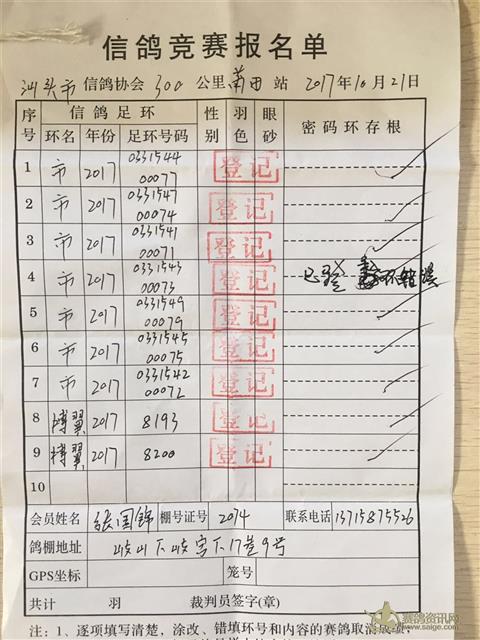 信鸽竞赛报名单
汕头市信鸽协会 300 公里 莆田 站 2017年10月21日
序号 信鸽足环 性别 羽色 眼砂 密码环存根
环名 年份 足环号码
1 市 2017 0331544 00077 登记
2 市 2017 0331547 00074 登记
3 市 2017 0331541 00071 登记
4 市 2017 0331543 00073 登记 已验 环错误
5 市 2017 0331549 00079 登记
6 市 2017 0331545 00075 登记
7 市 2017 0331542 00072 登记
8 博翼 2017 8193 登记
9 博翼 2017 8200 登记
10
会员姓名 张国锦 棚号证号 2074 联系电话 13715875526
鸽棚地址 岐山下岐宫下17巷9号
GPS坐标 笼号
共计 羽 裁判员签字(章)
注:1、逐项填写清楚,涂改、错填环号和内容的赛鸽取消成
赛鸽资讯网
www.saige.com